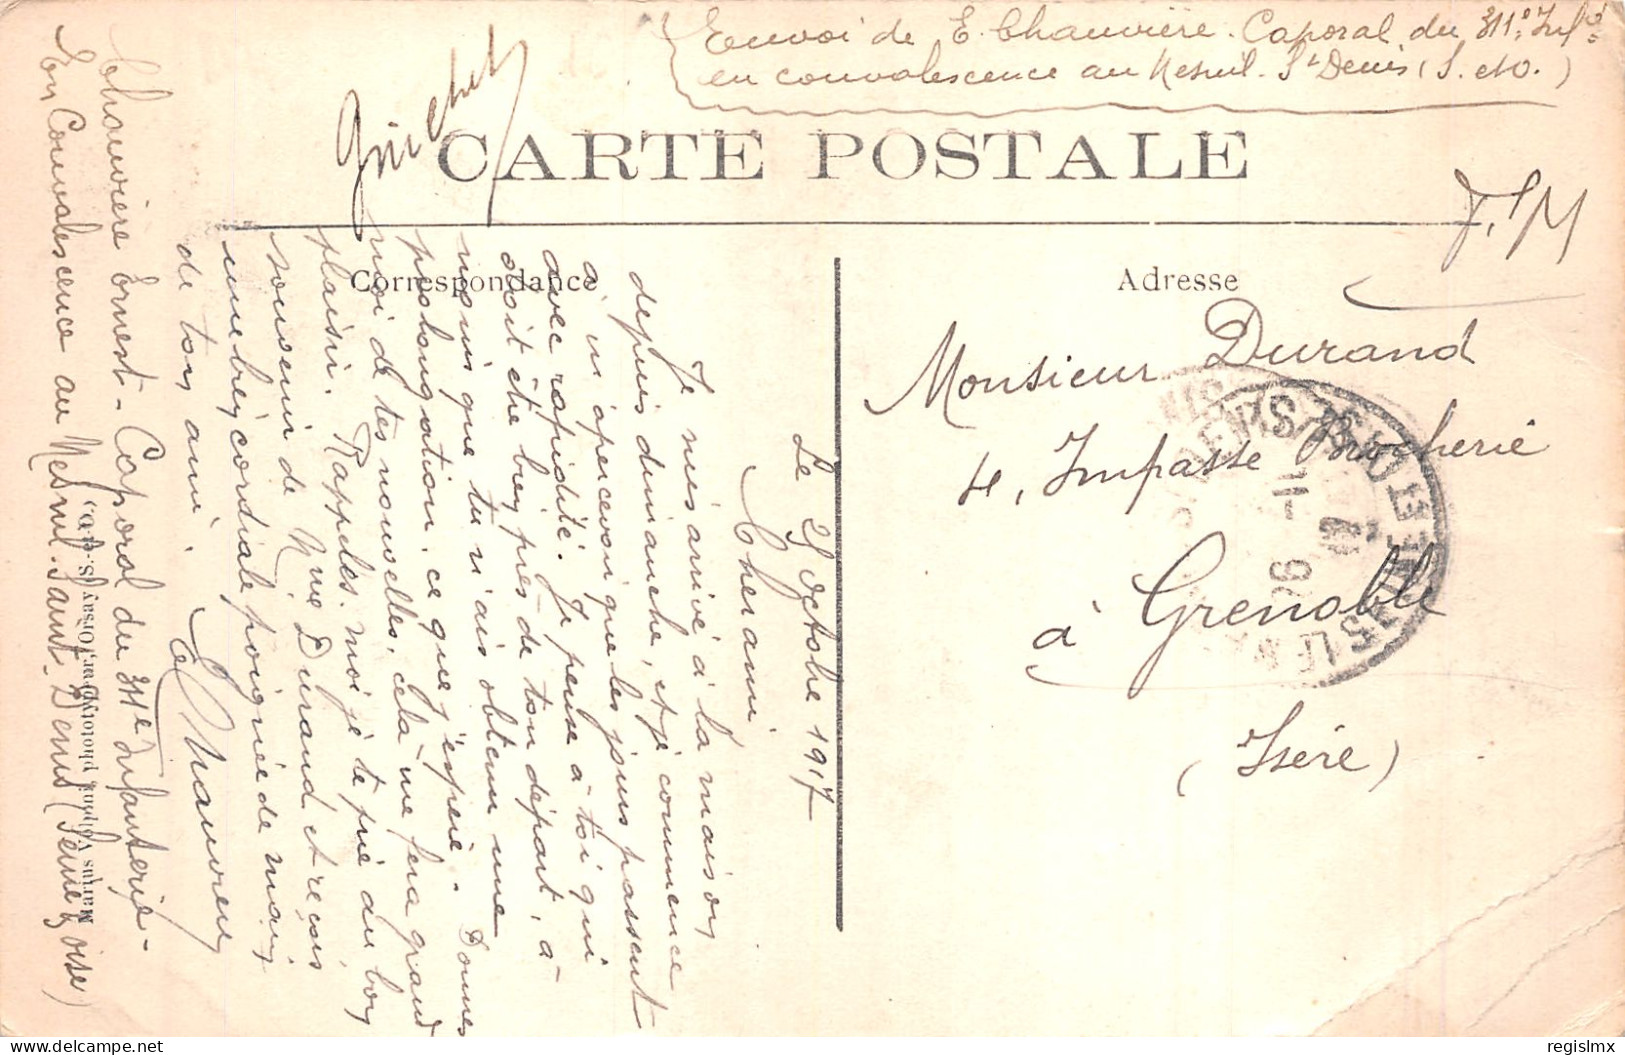 Envoi de E. Chauvière. Caporal du 311e. Inf.
en convalescence au Mesnil. St Denis (S. et O.)
CARTE POSTALE
F. M
Correspondance
Adresse
Monsieur Durand
4, Impasse Brocherie
à Grenoble
(Isère)
Le 25 Octobre 1917
Cher ami
Je suis arrivé à la maison
depuis dimanche, et je commence
à m'apercevoir que les jours passent
avec rapidité. Je pense à toi qui
doit être bien près de ton départ, à
moins que tu n'ais obtenu une
prolongation, ce que j'espère. Donnes
moi de tes nouvelles, cela me fera grand
plaisir. Rappeles-moi je te prie au bon
souvenir de Mme Durand et reçois
une bien cordiale poignée de main
de ton ami.
E Chauvière
Chauvière Ernest - Caporal du 311e Infanterie -
En Convalescence au Mesnil. Saint-Denis (Seine & oise)
26 -
delcampe.net
regislmx